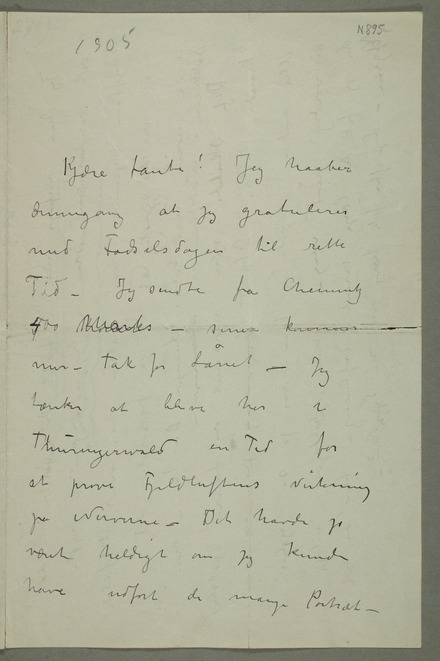 1905
N 895
Kjære tante! Jeg haaber
denngang at jeg gratulerer
med Fødselsdagen til rette
Tid – Jeg sendte fra Chemnitz
400 Marks – senere kommer
mer – Tak for Lånet – Jeg
tænker at blive her i
Thüringerwald en Tid for
at prøve Fjeldluftens Virkning
på Nerverne – Det havde jo
vært heldigt om jeg kunde
have udført de mange Portræt –